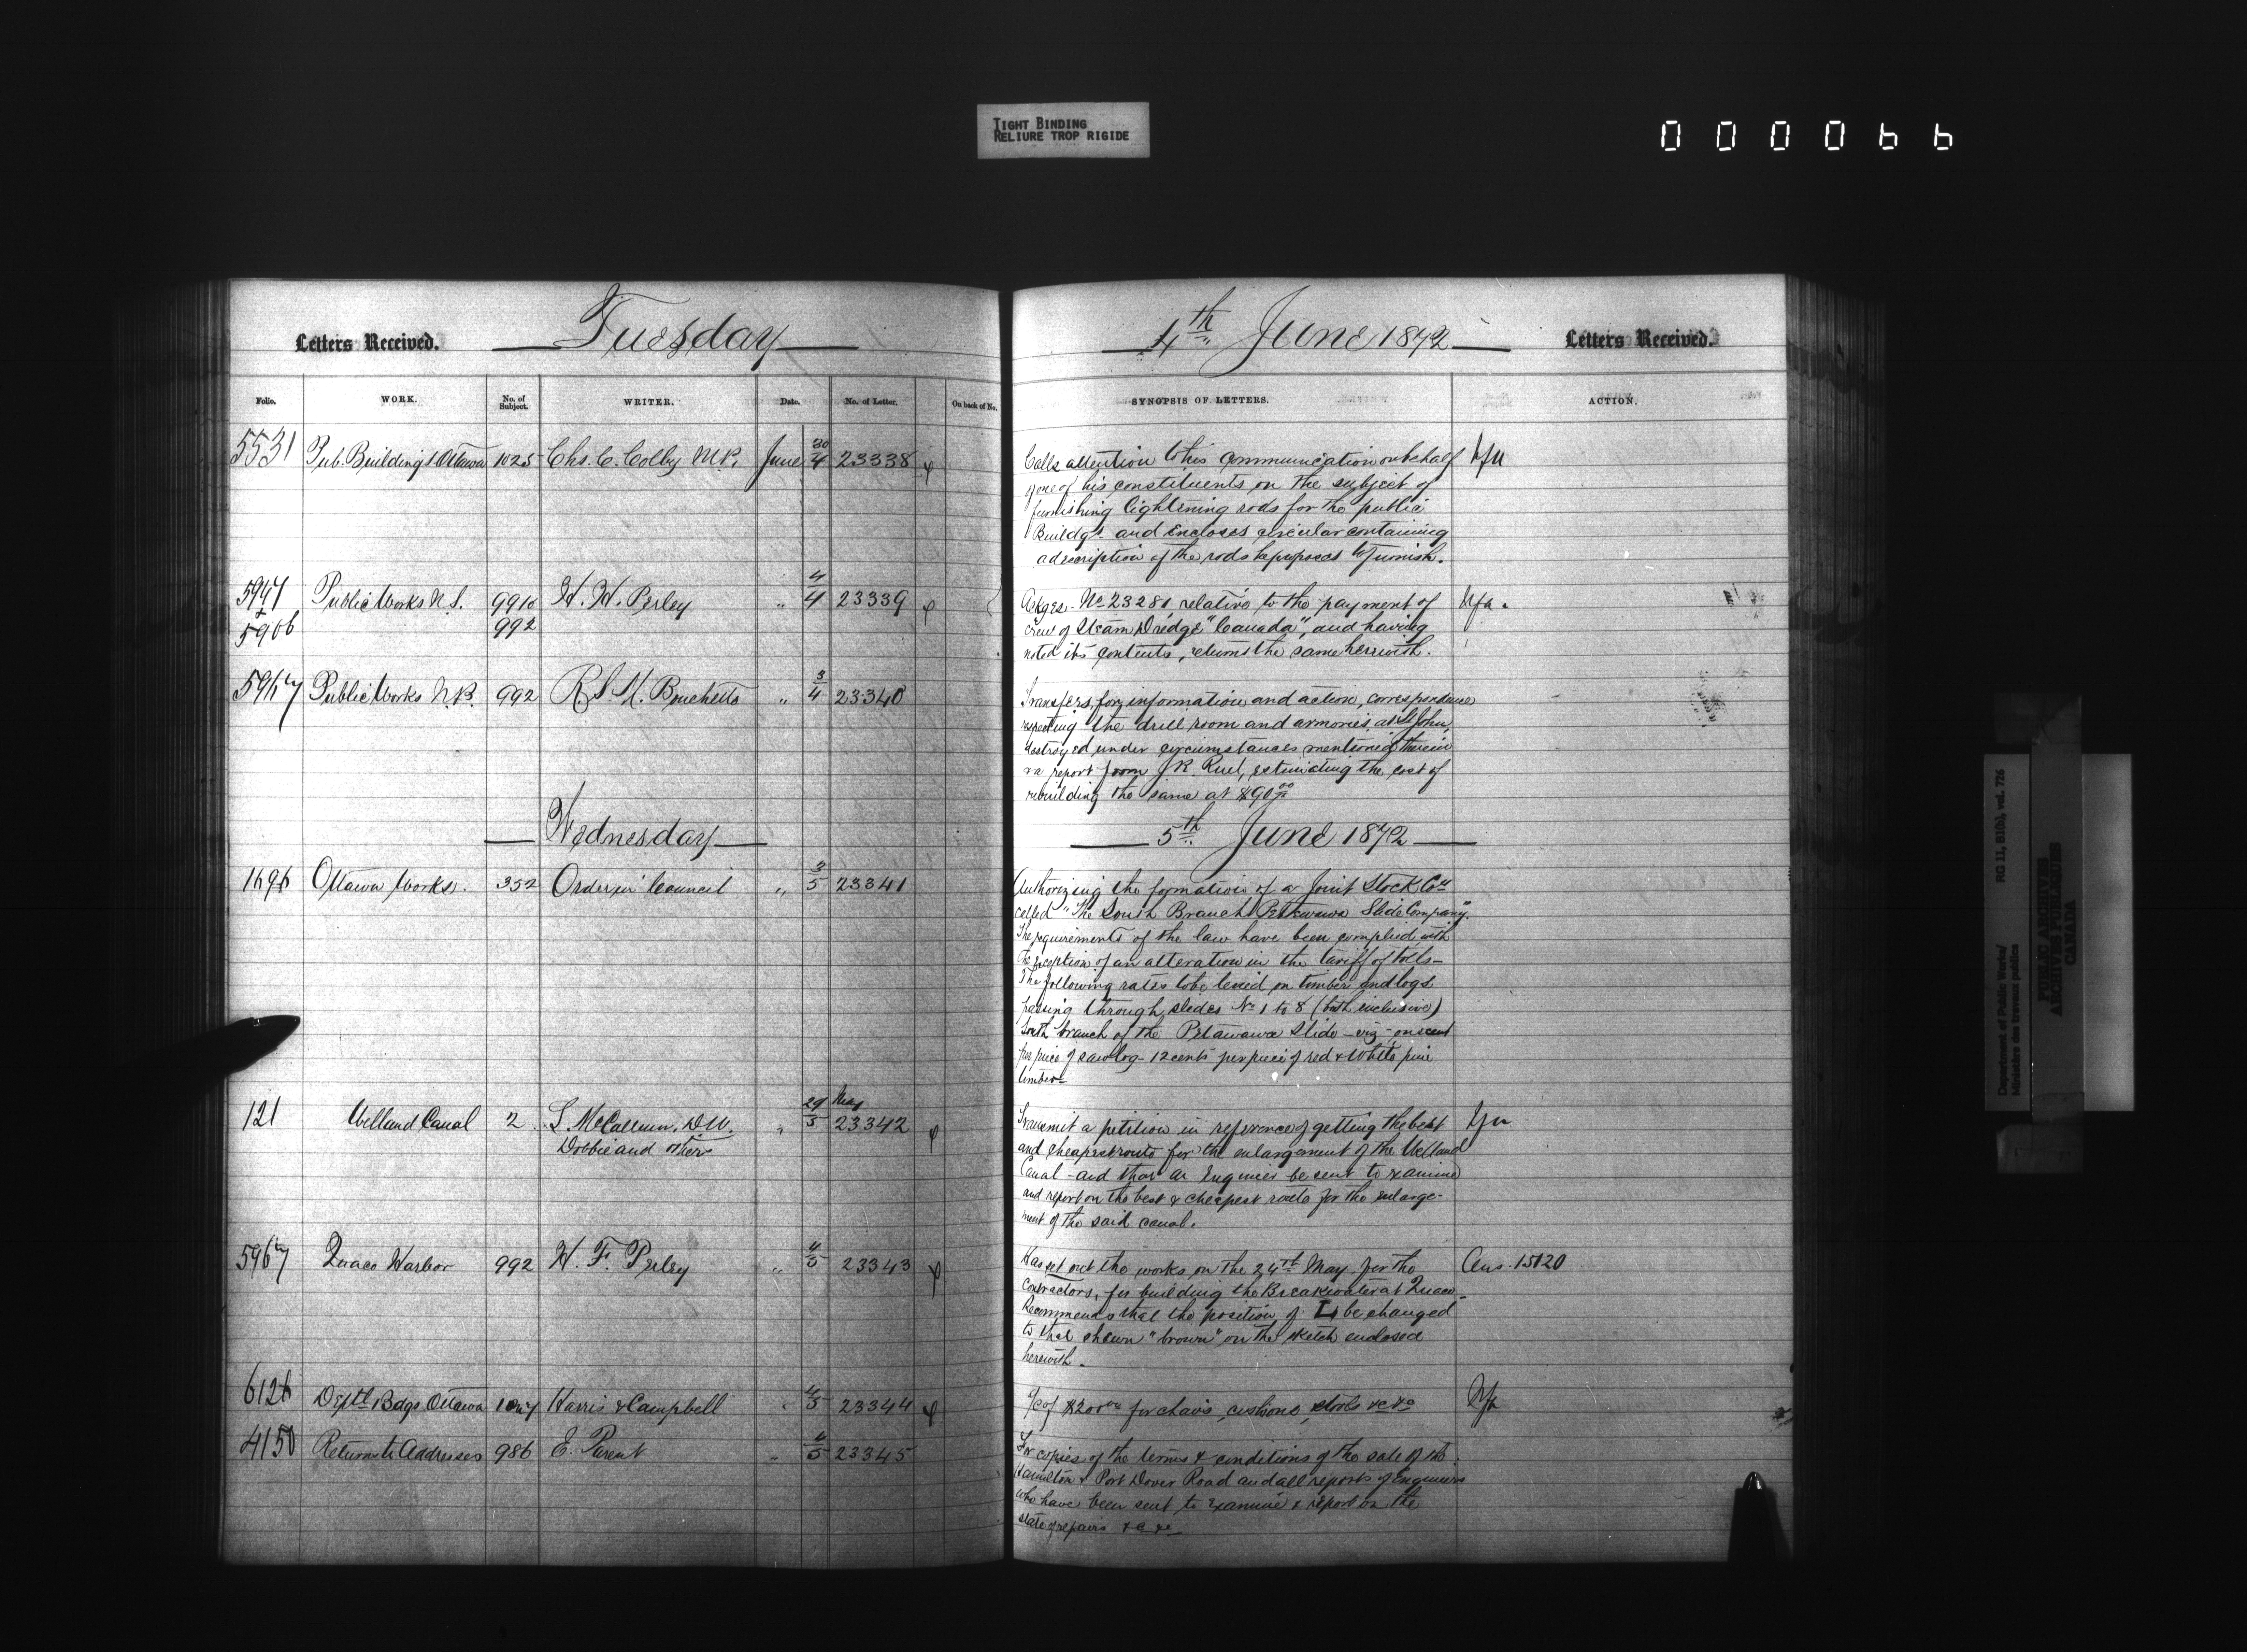 TIGHT BINDING
RELIURE TROP RIGIDE
000066
Letters Received. Tuesday
4th June 1872 Letters Received.
Folio. WORK. No. of Subject. WRITER. Date. No. of Letter. On back of No.
SYNOPSIS OF LETTERS. ACTION.
5531 Pub. Buildings Ottawa 1025 Chs. C. Colby M.P. June 30/4 23338
Calls attention to his communication on behalf
of one of his constituents on the subject of
furnishing lightening rods for the public
Buildgs. and encloses circular containing
a description of the rods he proposes to furnish.
Public Works N.S. H. H. Perley " 4/4 23339
992
Ackges. No 23281 relative to the payment of Nfa.
crew of Steam Dredge "Canada", and having
noted its contents, returns the same herewith.
Public Works N.B. 992 R. S. M. Bouchette " 3/4 23340
Transfers, for information and action, correspondence
respecting the drill room and armories, at St John,
destroyed under circumstances mentioned therein
& a report from J. R. Ruel, estimating the cost of
rebuilding the same at $90.00
Wednesday
5th June 1872
1696 Ottawa Works. 352 Order in Council " 3/5 23341
Authorizing the formation of a Joint Stock Coy
called "The South Branch Petawawa Slide Company".
The requirements of the law have been complied with
the exception of an alteration in the tariff of tolls-
The following rates to be levied on timber and logs
passing through slides No 1 to 8 (both inclusive)
South branch of the Petawawa Slide - viz - one cent
per piece of sawlog - 12 cents per piece of red & White pine
timber-
121 Welland Canal 2 L. McCallum, D.W. " 29 May/5 23342
Dobbie and others
Transmit a petition in reference of getting the best
and cheapest route for the enlargement of the Welland
Canal - and that an Engineer be sent to examine
and report on the best & cheapest route for the enlarge-
ment of the said canal.
5967 Quaco Harbor 992 H. F. Perley " 4/5 23343
Has set out the works on the 24th May for the Ans. 15120
contractors, for building the Breakwater at Quaco-
Recommends that the position of L be changed
to that shewn "brown" on the sketch enclosed
herewith.
6126 Deptl Bdgs Ottawa Harris & Campbell " 4/5 23344
a/c of for chairs, cushions, stools &c &c Nfa
4150 Returns to Addresses 986 E. Parent " 4/5 23345
For copies of the terms & conditions of the sale of the
Hamilton & Port Dover Road and all reports of Engineers
who have been sent to examine & report on the
state of repairs &c &c
Department of Public Works/ RG 11, B1(b), vol. 726
Ministère des travaux publics
PUBLIC ARCHIVES
ARCHIVES PUBLIQUES
CANADA